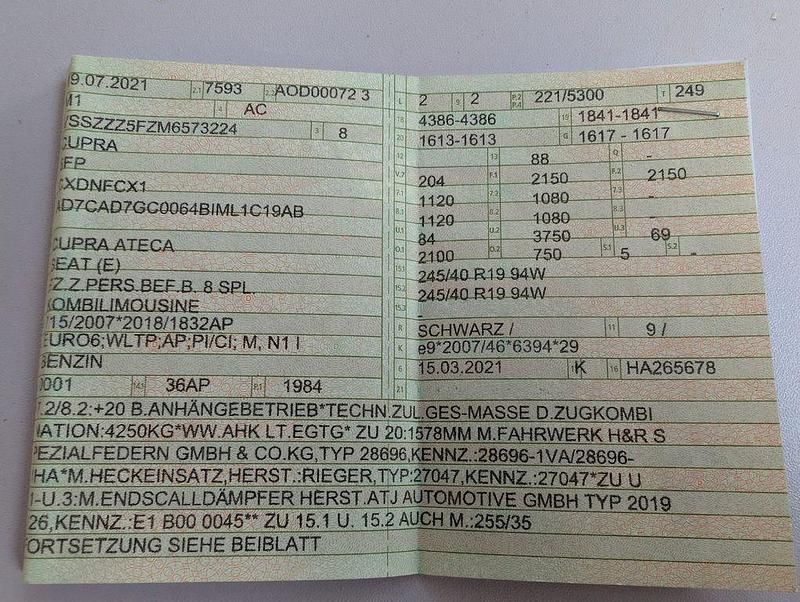 9.07.2021 2.1 7593 2.2 AOD00072 3
M1 4 AC
VSSZZZ5FZM6573224 3 8
CUPRA
5FP
CXDNFCX1
AD7CAD7GC0064BIML1C19AB
CUPRA ATECA
SEAT (E)
FZ.Z.PERS.BEF.B. 8 SPL.
KOMBILIMOUSINE
715/2007*2018/1832AP
EURO6;WLTP;AP;PI/CI; M, N1 I
BENZIN
0001 14.1 36AP P.1 1984
L 2 9 2 P.2 P.4 221/5300 T 249
18 4386-4386 19 1841-1841
20 1613-1613 G 1617 - 1617
12 13 88 Q -
V.7 204 F.1 2150 F.2 2150
7.1 1120 7.2 1080 7.3 -
8.1 1120 8.2 1080 8.3 -
U.1 84 U.2 3750 U.3 69
O.1 2100 O.2 750 S.1 5 S.2 -
15.1 245/40 R19 94W
15.2 245/40 R19 94W
15.3 -
R SCHWARZ / 11 9 /
K e9*2007/46*6394*29
6 15.03.2021 17 K 16 HA265678
21
7.2/8.2:+20 B.ANHÄNGEBETRIEB*TECHN.ZUL.GES-MASSE D.ZUGKOMBI
NATION:4250KG*WW.AHK LT.EGTG* ZU 20:1578MM M.FAHRWERK H&R S
PEZIALFEDERN GMBH & CO.KG,TYP 28696,KENNZ.:28696-1VA/28696-
HA*M.HECKEINSATZ,HERST.:RIEGER,TYP:27047,KENNZ.:27047*ZU U
1-U.3:M.ENDSCALLDÄMPFER HERST.ATJ AUTOMOTIVE GMBH TYP 2019
26,KENNZ.:E1 B00 0045** ZU 15.1 U. 15.2 AUCH M.:255/35
FORTSETZUNG SIEHE BEIBLATT